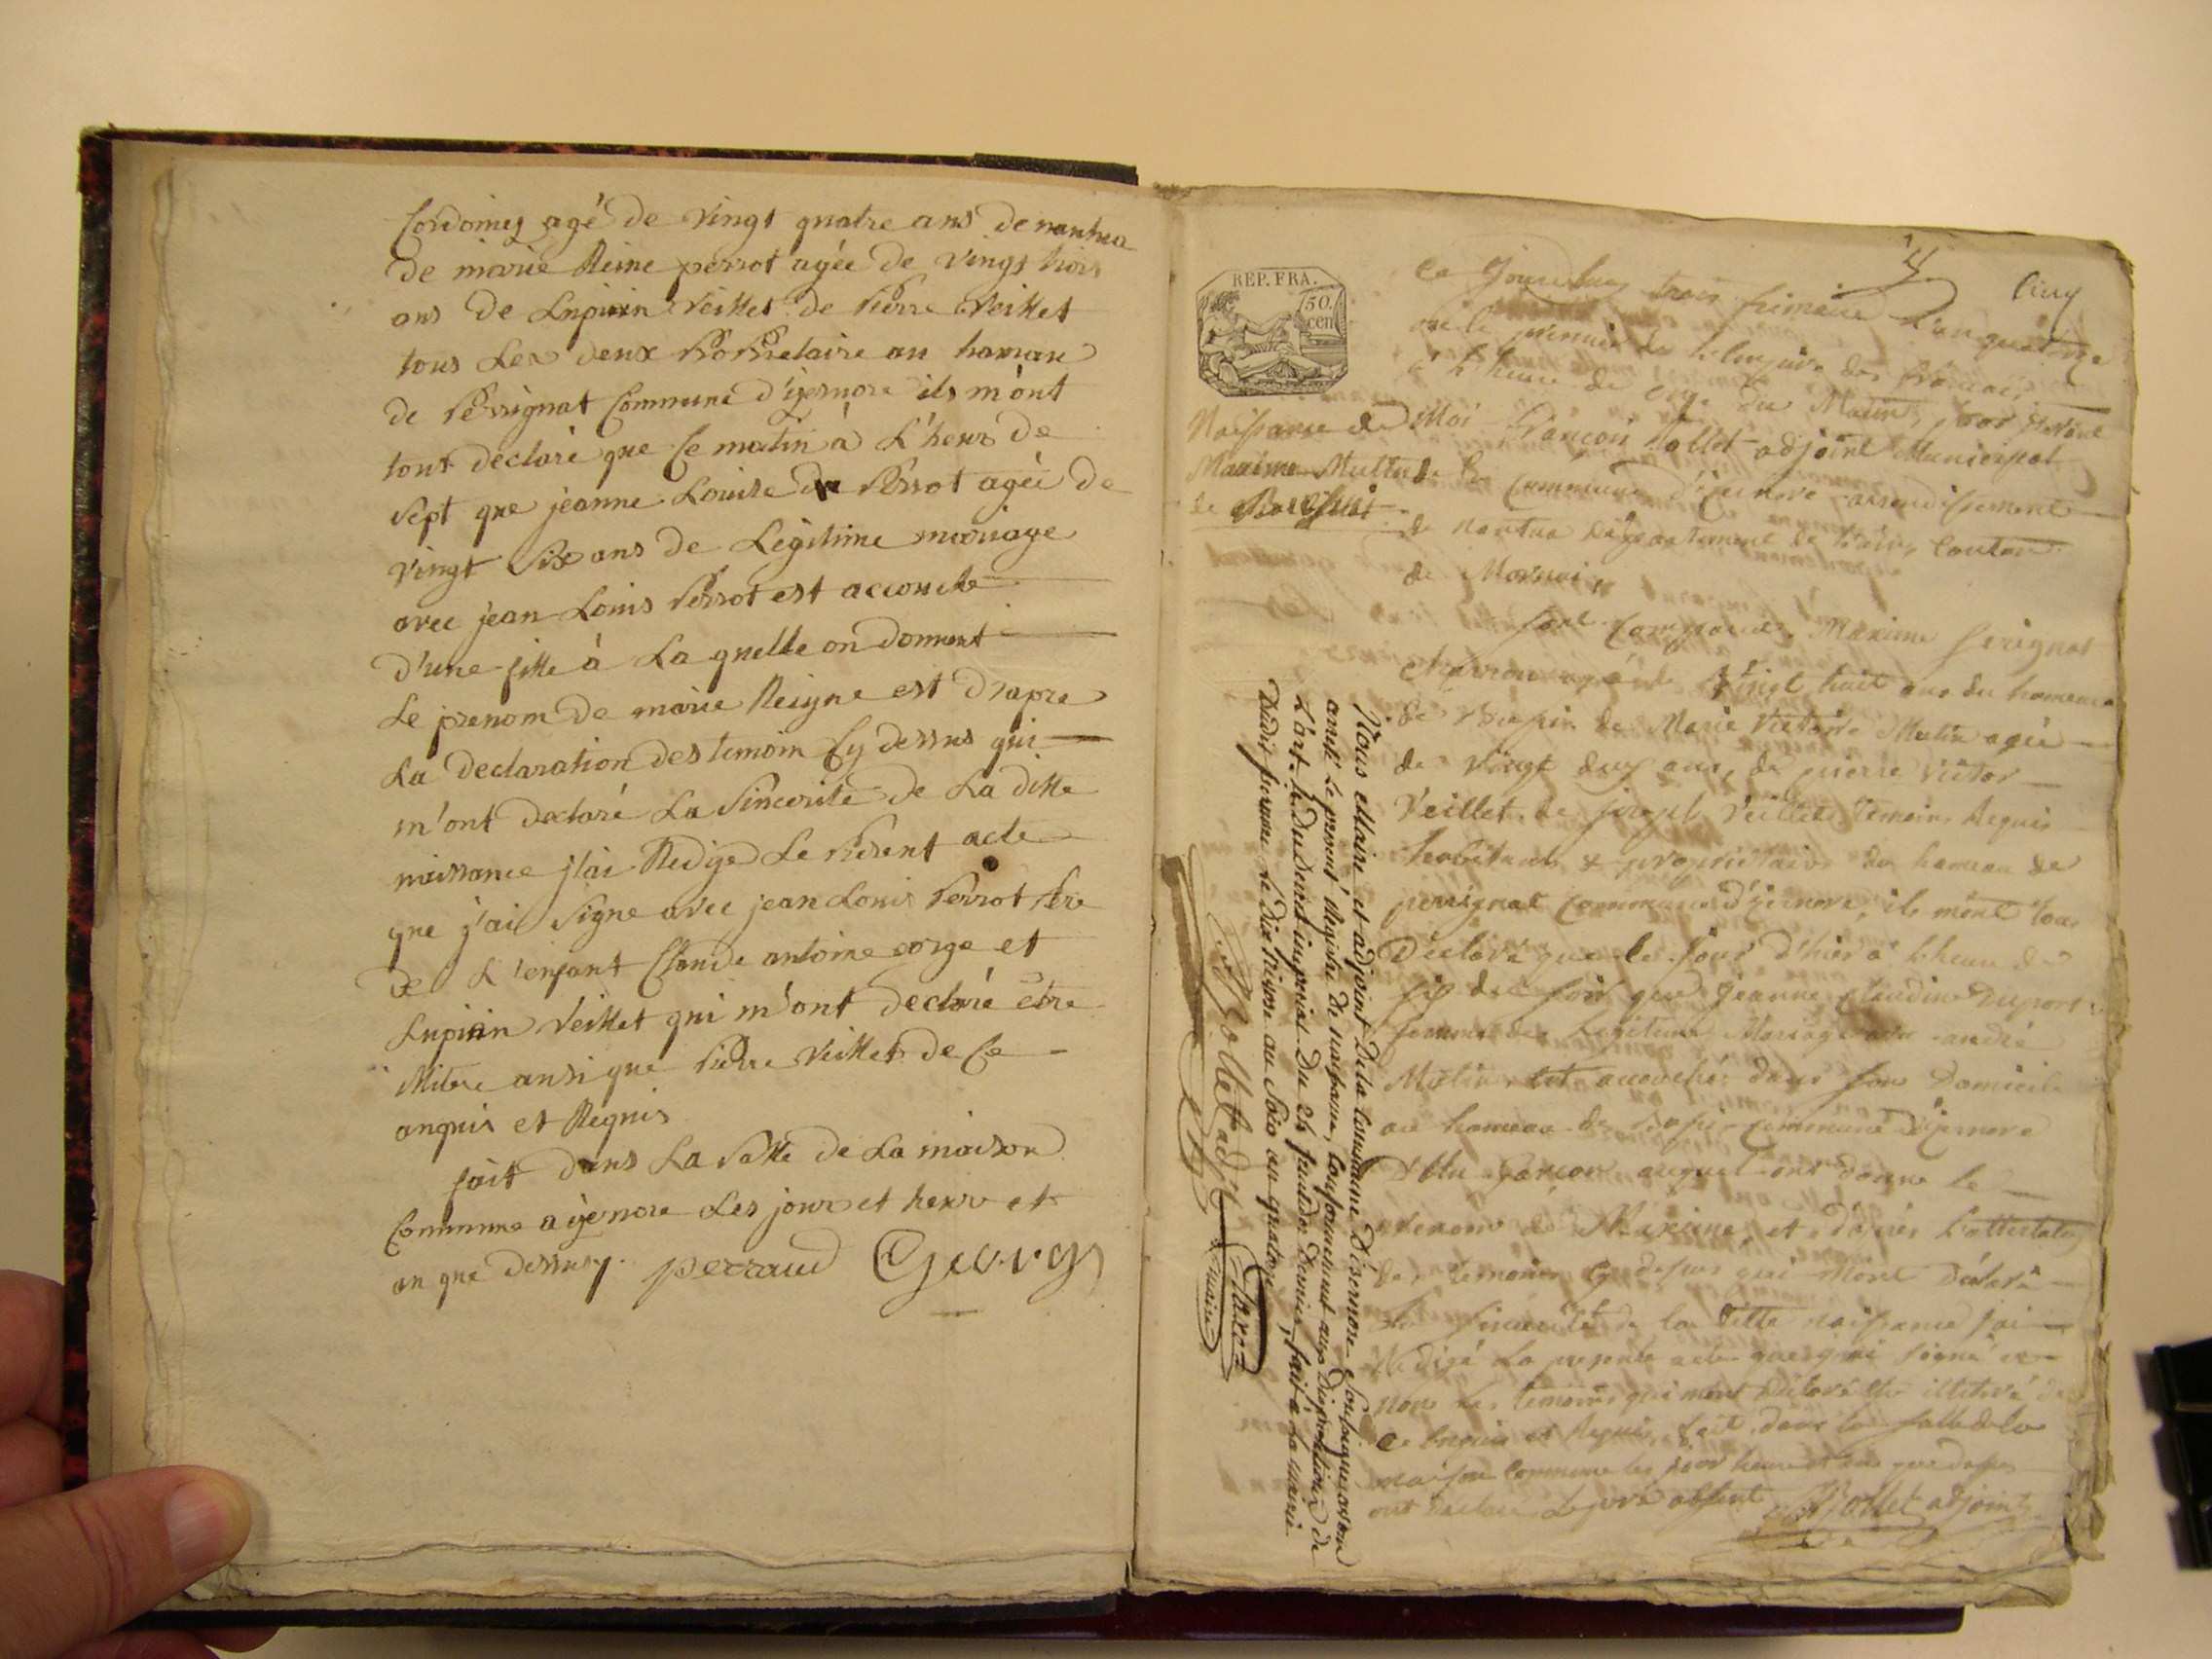 Cordonier agé de vingt quatre ans de nantua
de marie Reine perrot agée de vingt trois
ans de Lupicin veillet de Pierre veillet
tous Les deux Propriétaire au hamau
de Perrignat Commune d'izernore ils m'ont
tout déclaré que Ce matin à L'heur de
sept que jeanne Louise Perrot agée de
vingt Six ans de Légitime mariage
avec jean Louis Perrot est accouché
d'une fille à La quelle on donnent
Le prenom de marie Reigne est d'apre
La declaration des temoin Cy dessus qui
m'ont declaré La Sincerité de La ditte
naissance j'ai Redigé Le Présent acte
que j'ai Signe avec jean Louis Perrot Pere
de L'enfant Claude antoine gorge et
Lupicin Veillet qui m'ont declaré etre
illitere ansi que Pierre Veillet de Ce
anquis et Requis
fait dans La Salle de La maison
Commune a izernore Les jour et heur et
an que dessus perraud George
REP. FRA.
50
cen
Cinq
Ce Jourdhuy trois frimaire L'an quatorze
le premier de l'empire des français
à l'heure de onze du Matin, par devant
Moi François Jollet adjoint Municipal
de la Commune d'izernore arrondissement
de nantua département de l'ain, Canton
de Mornai
Naissance de
Maxime Mutin
de
Sont Comparu Maxime Perignat
Charron agé de Vingt huit ans du hameau
de de Marie Victoire Mutin agée
de Vingt deux ans, de pierre Victor
Veillet de joseph Veillet temoin Requis
habitants & propriétaire du hameau de
perignat Commune d'izernore, ils m'ont tous
Déclaré que le jour d'hier à l'heure de
six du soir que Jeanne Claudine Dupont
femme de Legitime Mariage avec andré
Mutin est accouchée dans son Domicile
au hameau de Commune d'izernore
D'Un Garçon auquel ont donne le
prenom de Maxime, et d'après l'attestation
des temoins Cy dessus qui m'ont déclaré
la sincerité de la ditte naissance j'ai
Redigé Le present acte que j'ai signé et
non les temoins qui m'ont déclaré etre illiteré de
Ce Enquis et Requis, fait dans la salle de la
maison Commune les jour heure et an que dessus
ont déclaré le père absent Jollet adjoint
Nous Maire et adjoint De la Commune D'isernore Soussigné avons
arreté le present Registre de naissance, Conformement aux Dispositions de
L'art. Du Decret imperial Du fructidor dernier, fait à la mairie
Dudit isernore Le Dix Nivose an Soir an quatorze
Jollet adjt
maire